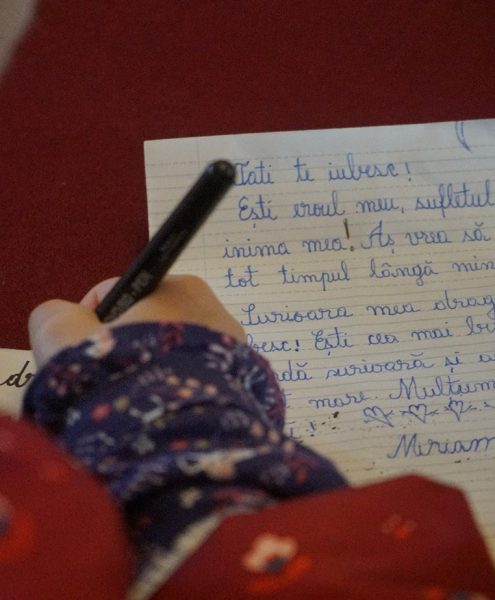 Tati te iubesc!
Ești eroul meu, sufletul
inima mea! Aș vrea să
tot timpul lângă
Surioara mea
Ești cea mai
surioară și
mare.
Miriam